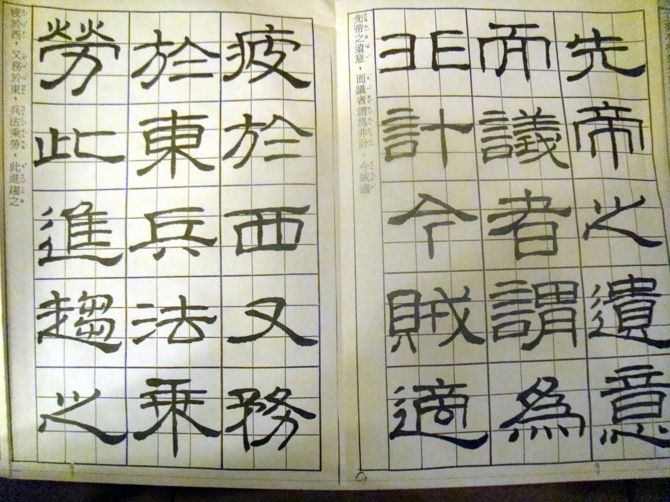 先帝之遺意
而議者謂為
非計今賊適
先帝之遺意，而議者謂為非計，今賊適
疲於西又務
於東兵法乘
勞此進趨之
疲於西，又務於東，兵法乘勞，此進趨之